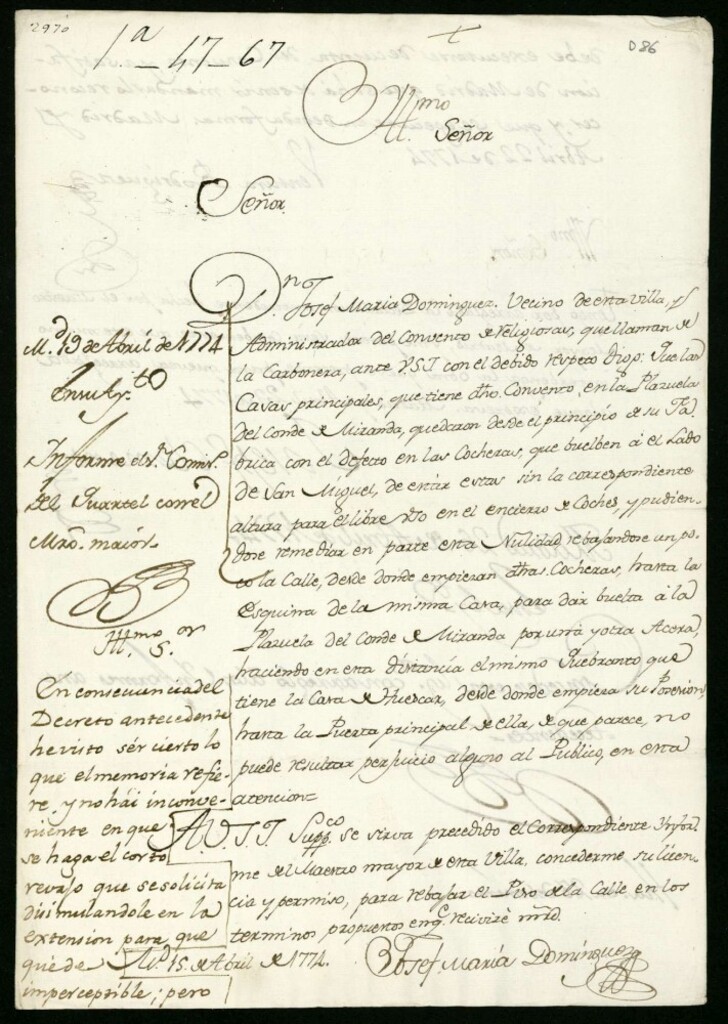 2970
1ª_47_67
D86
Yllmo
Señor
Señor.
Dn. Josef Maria Dominguez. Vecino de esta Villa, y
Administrador del Convento de Religiosas, que llaman de
la Carbonera, ante V.S.I con el debido respeto Digo: Que las
Casas principales, que tiene dho. Convento, en la Plazuela
del Conde de Miranda, quedaron desde el principio de su Fa
brica con el defecto en las Cocheras, que buelben á el Lado
de San Miguel, de estár estas sin la correspondiente
altura para el libre uso en el encierro de Coches, y pudien
dose remediar en parte esta Nulidad rebajandose un po
co la Calle, desde donde empiezan dhas. Cocheras, hasta la
Esquina de la misma Casa, para dár buelta á la
Plazuela del Conde de Miranda por una y otra Acera,
haciendo en esta distancia el mismo Quebranto que
tiene la Casa de Huescar, desde donde empieza su Posesion,
hasta la Puerta principal de ella, de que parece, no
puede resultar perjuicio alguno al Publico, en esta
atencion=
A V.S.I. Suppco. se sirva precedido el Correspondiente Ynfor
me del Maestro mayor de esta Villa, concederme su licen
cia y permiso, para rebajar el Piso de la Calle en los
terminos propuestos en q. recivirè mrd.
Md. 15. de Abril de 1774.
Josef Maria Dominguez
Md. 19 de Abril de 1774
En su Ay.to
Informe el Sr. Comiso.
del Quartel con el
Mro. maior.
Yllmo. Sor.
En consecuencia del
Decreto antecedente
he visto sér cierto lo
que el memoria refie-
re, y no hái inconve-
niente en que
se haga el corto
revajo que se solicita
disimulandole en la
extension para que
quede
imperceptible; pero